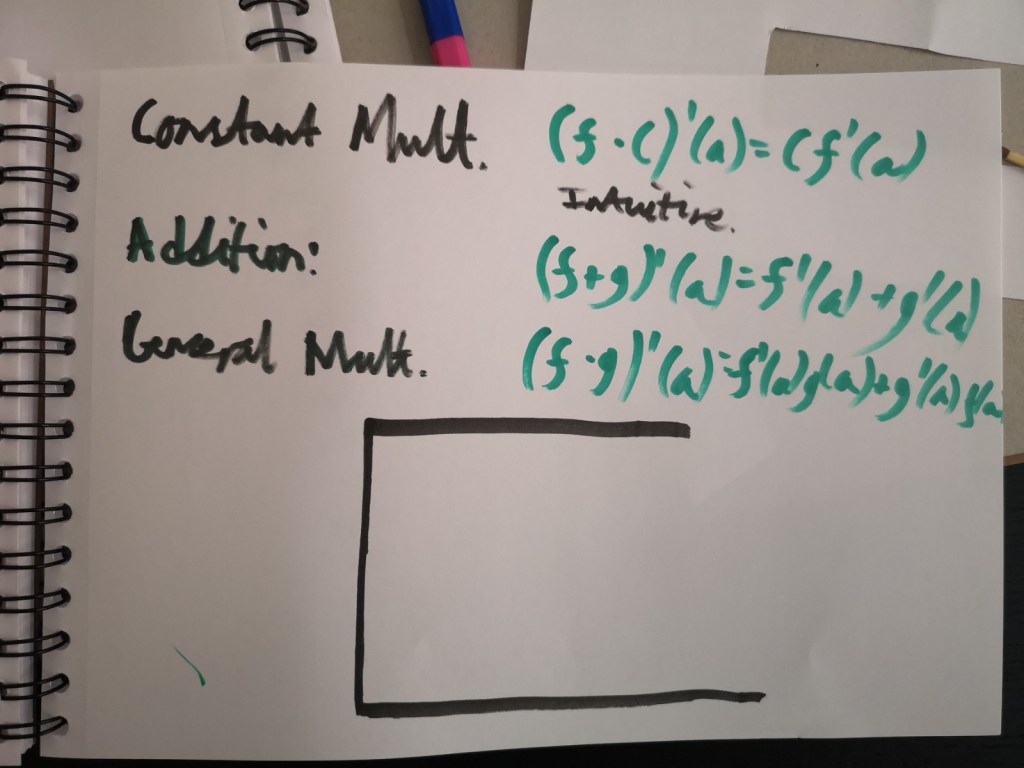 Constant Mult. (f · c)'(a) = cf'(a)
Intuitive.
Addition: (f+g)'(a) = f'(a) + g'(a)
General Mult. (f · g)'(a) = f'(a)g(a) + g'(a)f(a